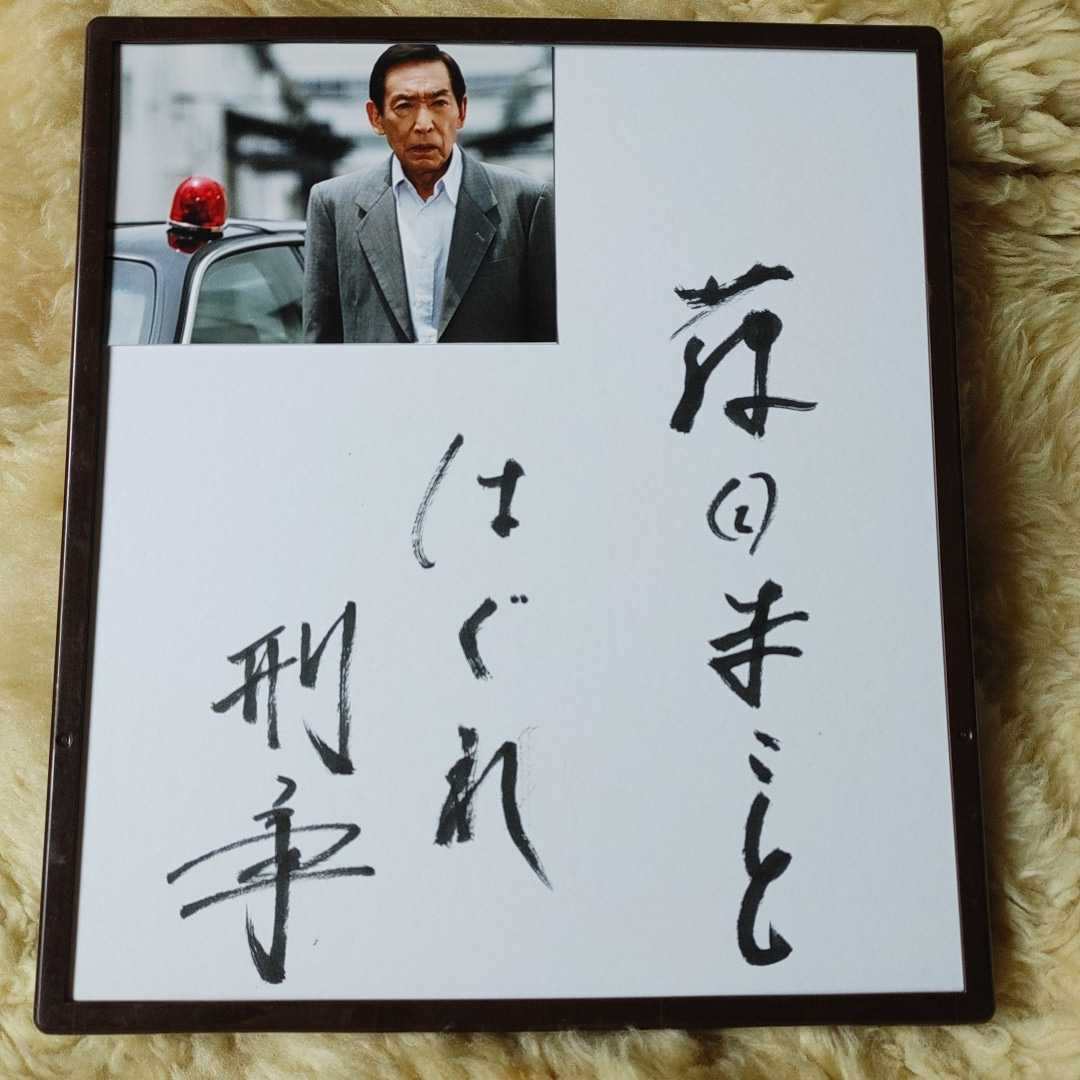 藤田まこと
はぐれ
刑事